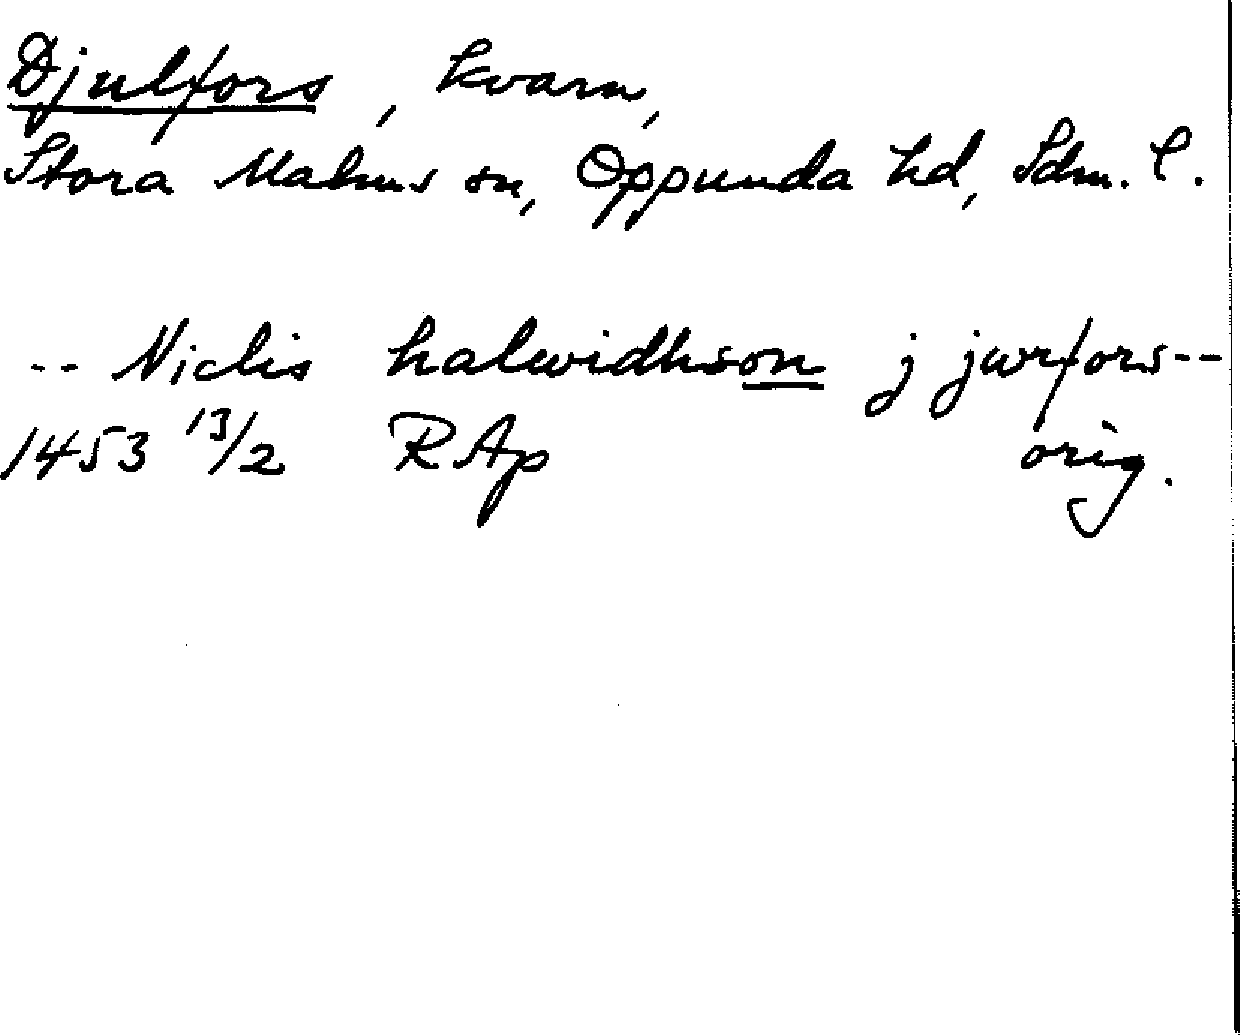 Djulfors, kvarn,
Stora Malms sn, Oppunda hd, Sdm. l.
-- Niclis halwidhson j jwrfors--
1453 13/2 RAp orig.